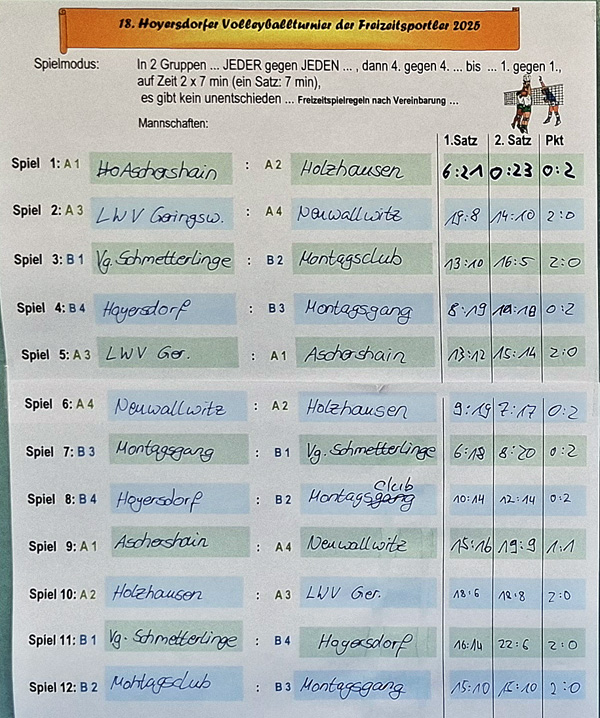 18. Hoyersdorfer Volleyballturnier der Freizeitsportler 2025
Spielmodus: In 2 Gruppen ... JEDER gegen JEDEN ... , dann 4. gegen 4. ... bis ... 1. gegen 1.,
auf Zeit 2 x 7 min (ein Satz: 7 min),
es gibt kein unentschieden ... Freizeitspielregeln nach Vereinbarung ...
Mannschaften:
1.Satz 2. Satz Pkt
Spiel 1: A 1 Aschershain : A 2 Holzhausen 6:21 0:23 0:2
Spiel 2: A 3 LWV Geringsw. : A 4 Neuwallwitz 19:8 14:10 2:0
Spiel 3: B 1 Vg. Schmetterlinge : B 2 Montagsclub 13:10 16:5 2:0
Spiel 4: B 4 Hoyersdorf : B 3 Montagsgang 8:19 :18 0:2
Spiel 5: A 3 LWV Ger. : A 1 Aschershain 13:12 15:14 2:0
Spiel 6: A 4 Neuwallwitz : A 2 Holzhausen 9:19 7:17 0:2
Spiel 7: B 3 Montagsgang : B 1 Vg. Schmetterlinge 6:18 8:20 0:2
Spiel 8: B 4 Hoyersdorf : B 2 Montagsclub 10:14 12:14 0:2
Spiel 9: A 1 Aschershain : A 4 Neuwallwitz 15:16 19:9 1:1
Spiel 10: A 2 Holzhausen : A 3 LWV Ger. 18:6 18:8 2:0
Spiel 11: B 1 Vg. Schmetterlinge : B 4 Hoyersdorf 16:14 22:6 2:0
Spiel 12: B 2 Montagsclub : B 3 Montagsgang 15:10 :10 2:0